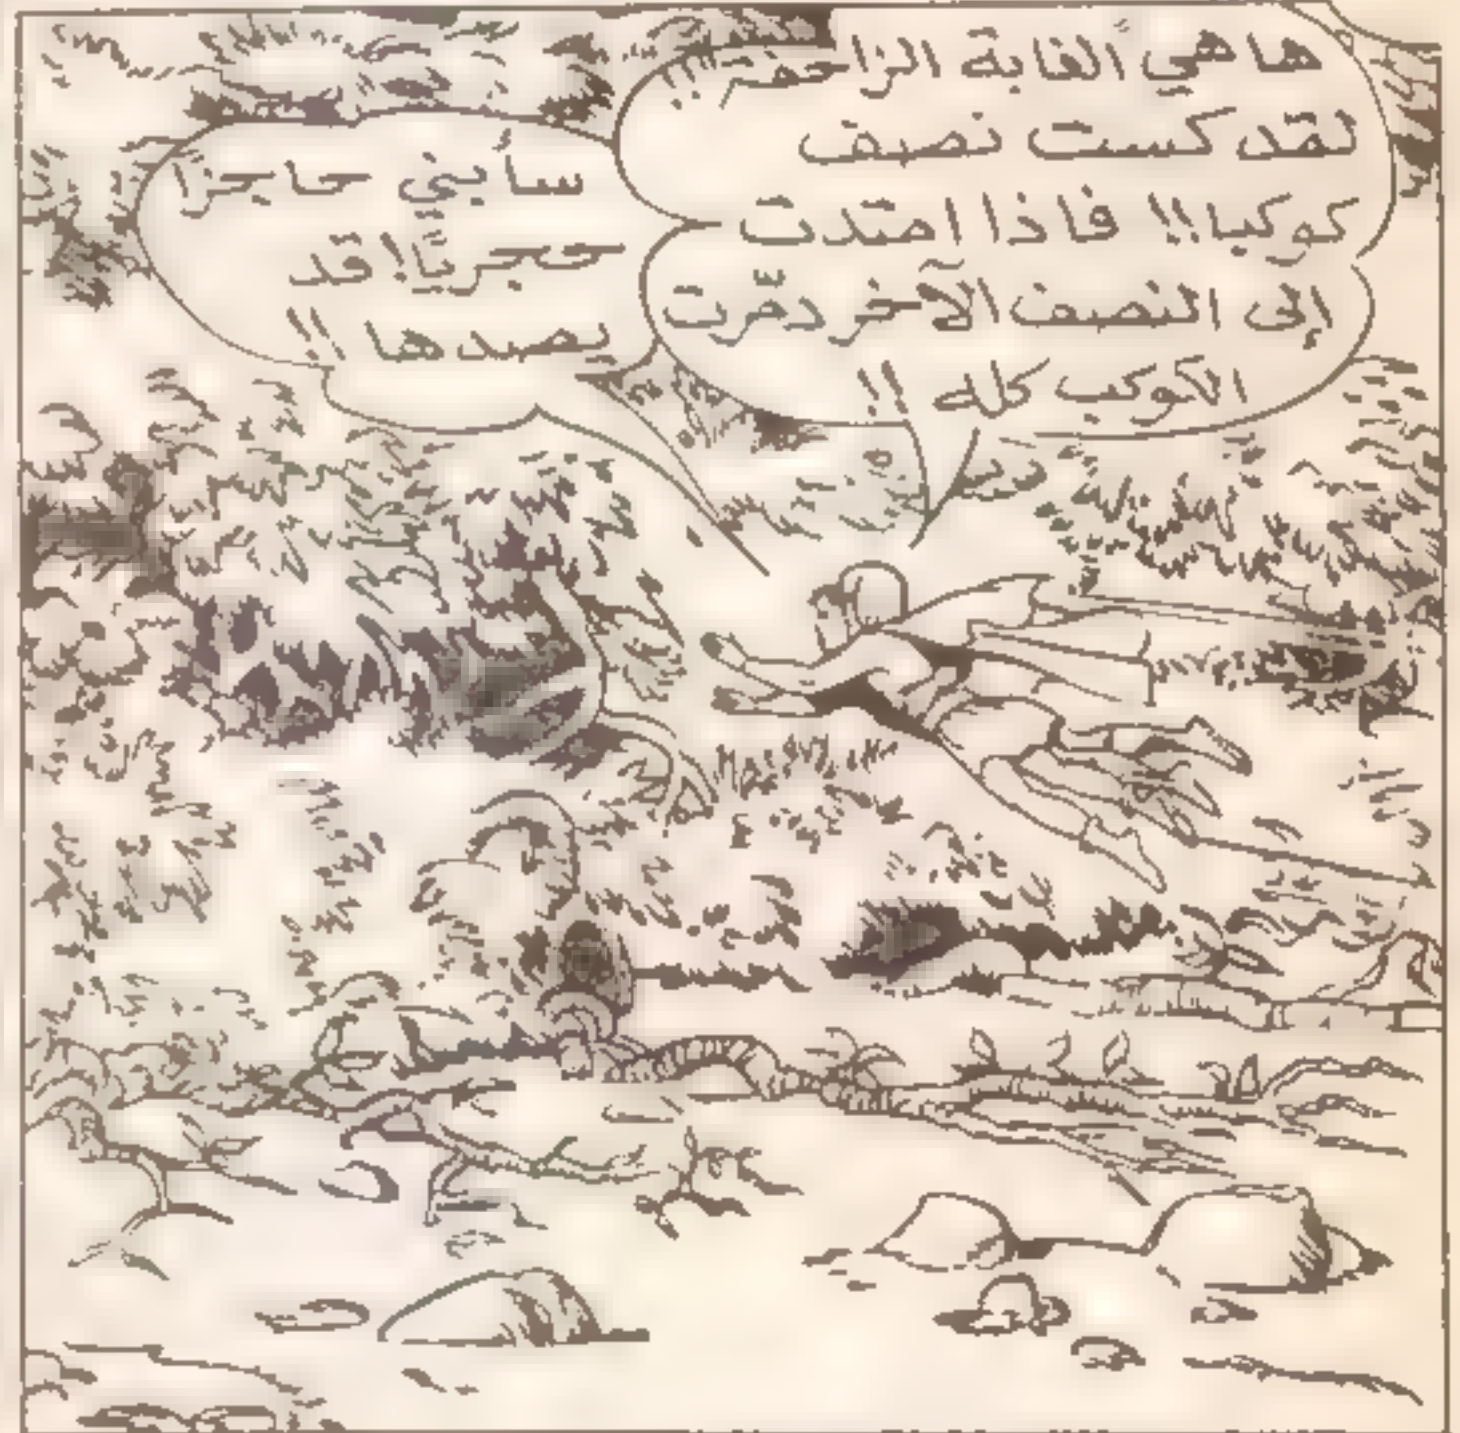 ها هي الغابة الزاحفة!!
لقد كست نصف
كوكبا!! فاذا امتدت
إلى النصف الآخر دمّرت
الكوكب كله !!
سأبني حاجزًا
حجريًّا! قد
يصدها !!